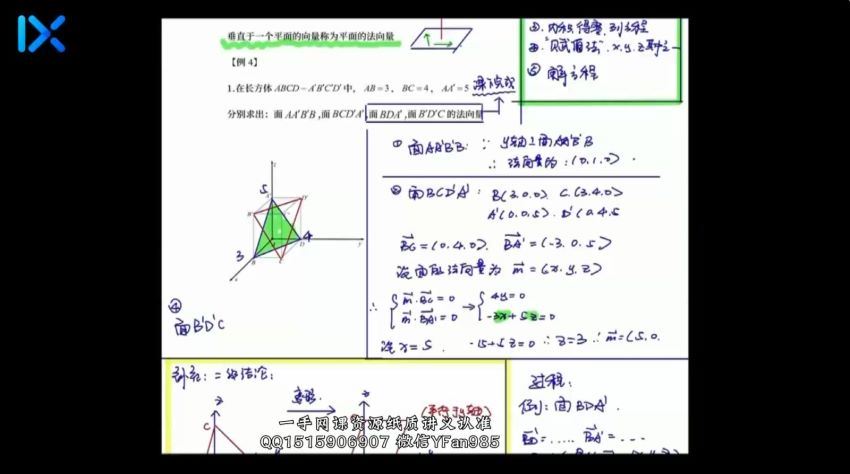 IX
垂直于一个平面的向量称为平面的法向量
【例4】
1.在长方体 ABCD-A'B'C'D' 中, AB=3, BC=4, AA'=5
课下完成
分别求出: 面 AA'B'B ,面 BCD'A' ,面 BDA' ,面 B'D'C 的法向量
②. 内积得零, 列方程
③. "贝武值法". x.y.z
⑤ 解方程
① 面AA'B'B: ∵ y轴⊥面AA'B'B
∴ 法向量为: (0.1.0)
② 面BCD'A': B(3.0.0) C.(3.4.0)
A'(0.0.5). D'(0.4.5
BC=(0.4.0). BA'=(-3.0.5)
设面的法向量为 m=(x.y.z)
∴ { m·BC=0 → { 4y=0
m·BA'=0 -3x+5z=0
设x=5. -15+5z=0 ∴z=3 ∴m=(5.0.
5
4
3
④
面B'D'C
二级结论:
(平行于y轴)
过程:
例: 面BDA'.
BD=.... BA'=...
一手网课资源纸质讲义认准
QQ1515906907 微信YFan985